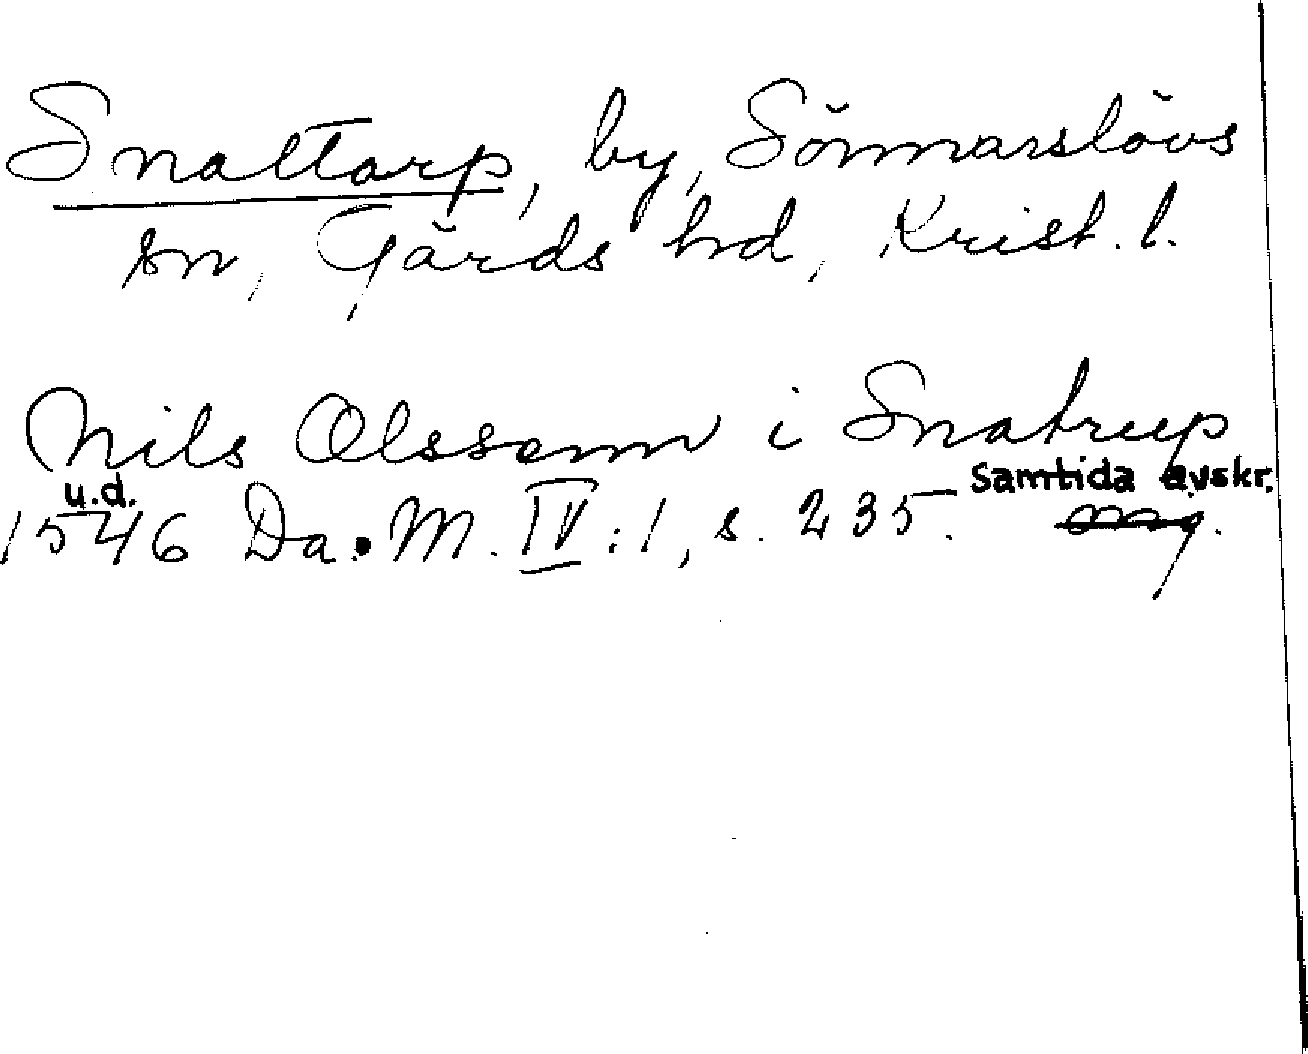 Snattarp, by, Sönnarslövs
sn, Gärds hd, Krist. l.
Nils Olssenn i Snatrup
u.d. samtida avskr.
1546 Da. M. IV:1, s. 235.